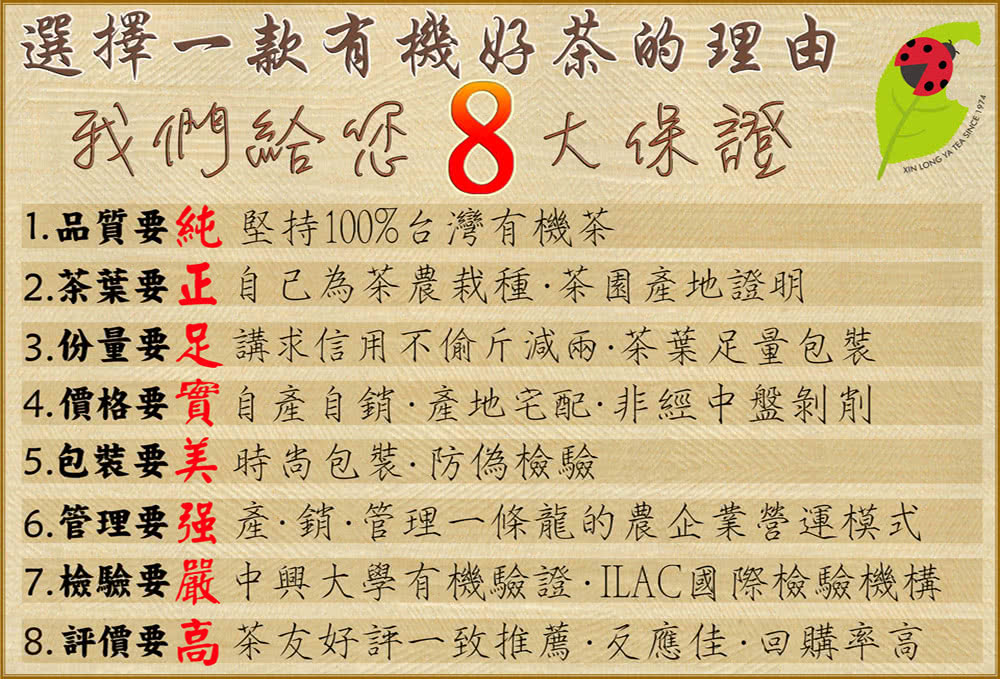 選擇一款有機好茶的理由
我們給您8大保證
XIN LONG YA TEA SINCE 1974
1.品質要純 堅持100%台灣有機茶
2.茶葉要正 自己為茶農栽種·茶園產地證明
3.份量要足 講求信用不偷斤減兩·茶葉足量包裝
4.價格要實 自產自銷·產地宅配·非經中盤剝削
5.包裝要美 時尚包裝·防偽檢驗
6.管理要强 產·銷·管理一條龍的農企業營運模式
7.檢驗要嚴 中興大學有機驗證·ILAC國際檢驗機構
8.評價要高 茶友好評一致推薦·反應佳·回購率高